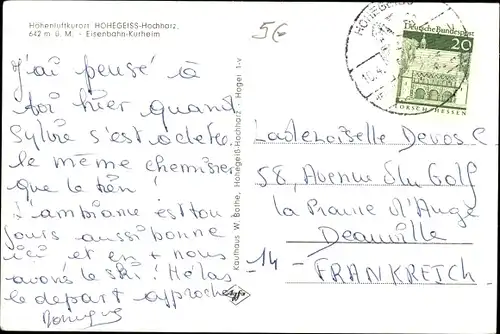 Höhenluftkurort HOHEGEISS-Hochharz,
642 m ü. M. - Eisenbahn-Kurheim
5€
J'ai pensé à
toi hier quand
Sylvie s'est achetée
le même chemisier
que le tien !
L'ambiance est tou
jours aussi bonne
ici et en + nous
avons le ski ! Hélas
le départ approche
Kaufhaus W. Bothe, Hohegeiß-Hochharz, Hager 1-v
HOHEGEISS
Deutsche Bundespost
20
LORSCH/HESSEN
Mademoiselle Devos C
58, Avenue du Golf
La Prairie d'Ange
Deauville
14 -
FRANKREICH